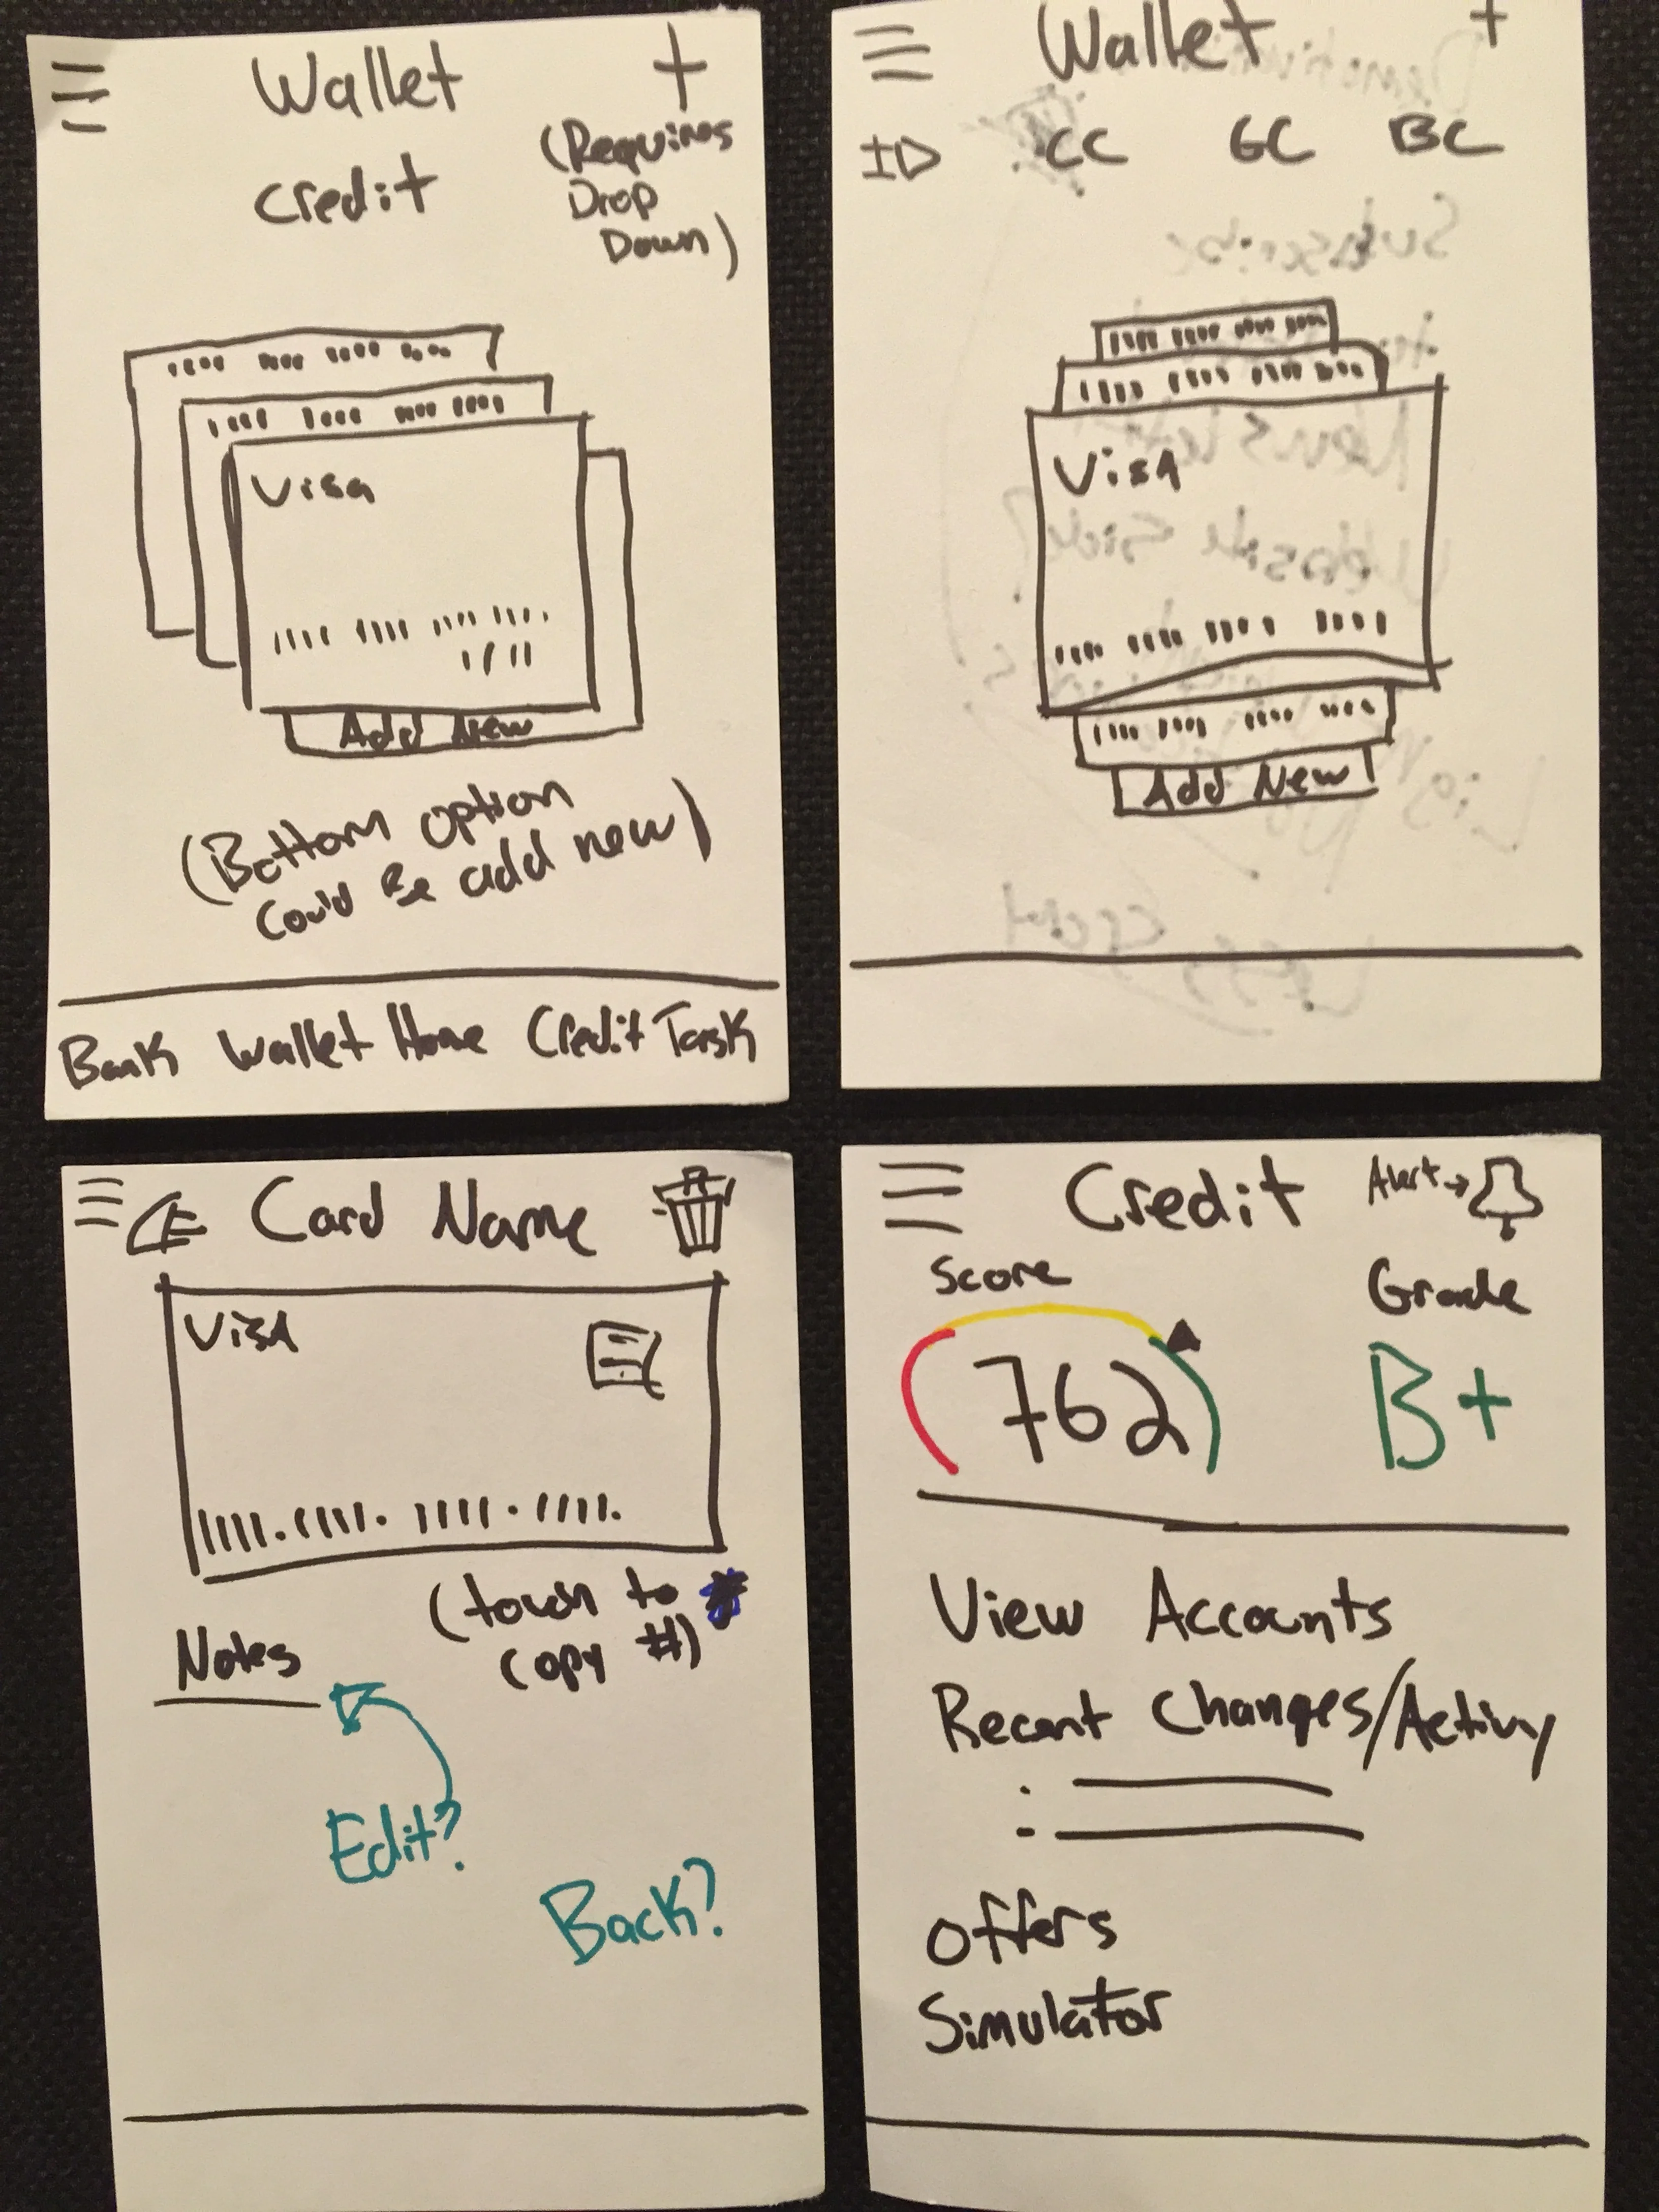 Wallet +
Credit
(Requires
Drop
Down)
Visa
Add New
(Bottom option
could Be add new)
Bank Wallet Home Credit Task
Wallet +
ID CC GC BC
VisA
Add New
Card Name
VisA
(touch to
copy #)
Notes
Edit?
Back?
Credit
Alert
Score
Grade
762
B+
View Accounts
Recent Changes/Activy
Offers
Simulator